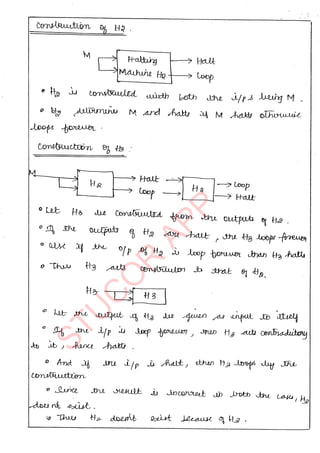 Construction of H2.
M → Halting → Halt
Machine H2 → Loop
• H2 is constructed with both the i/p s being M.
• H2 determines M and halts if M halts otherwise
loops forever.
Construction of H3:
M → H2 → Halt → H3 → Loop
Loop → Halt
• Let H3 be constructed from the outputs of H2.
• If the outputs of H2 are halt, the H3 loops forever
• else if the o/p of H2 is loop forever than H3 halts
• Thus H3 acts to that of H2.
H3 → H3
• Let the output of H3 be given as input to itself
• If the i/p is loop forever, then H3 acts contradictory
to it, hence halts.
• And if the i/p is halt, then H3 loops by the
construction.
• Since the result is incorrect in both the cases, H3
does nt exist.
• Thus doesnt exist because of H3.
STUCOR APP